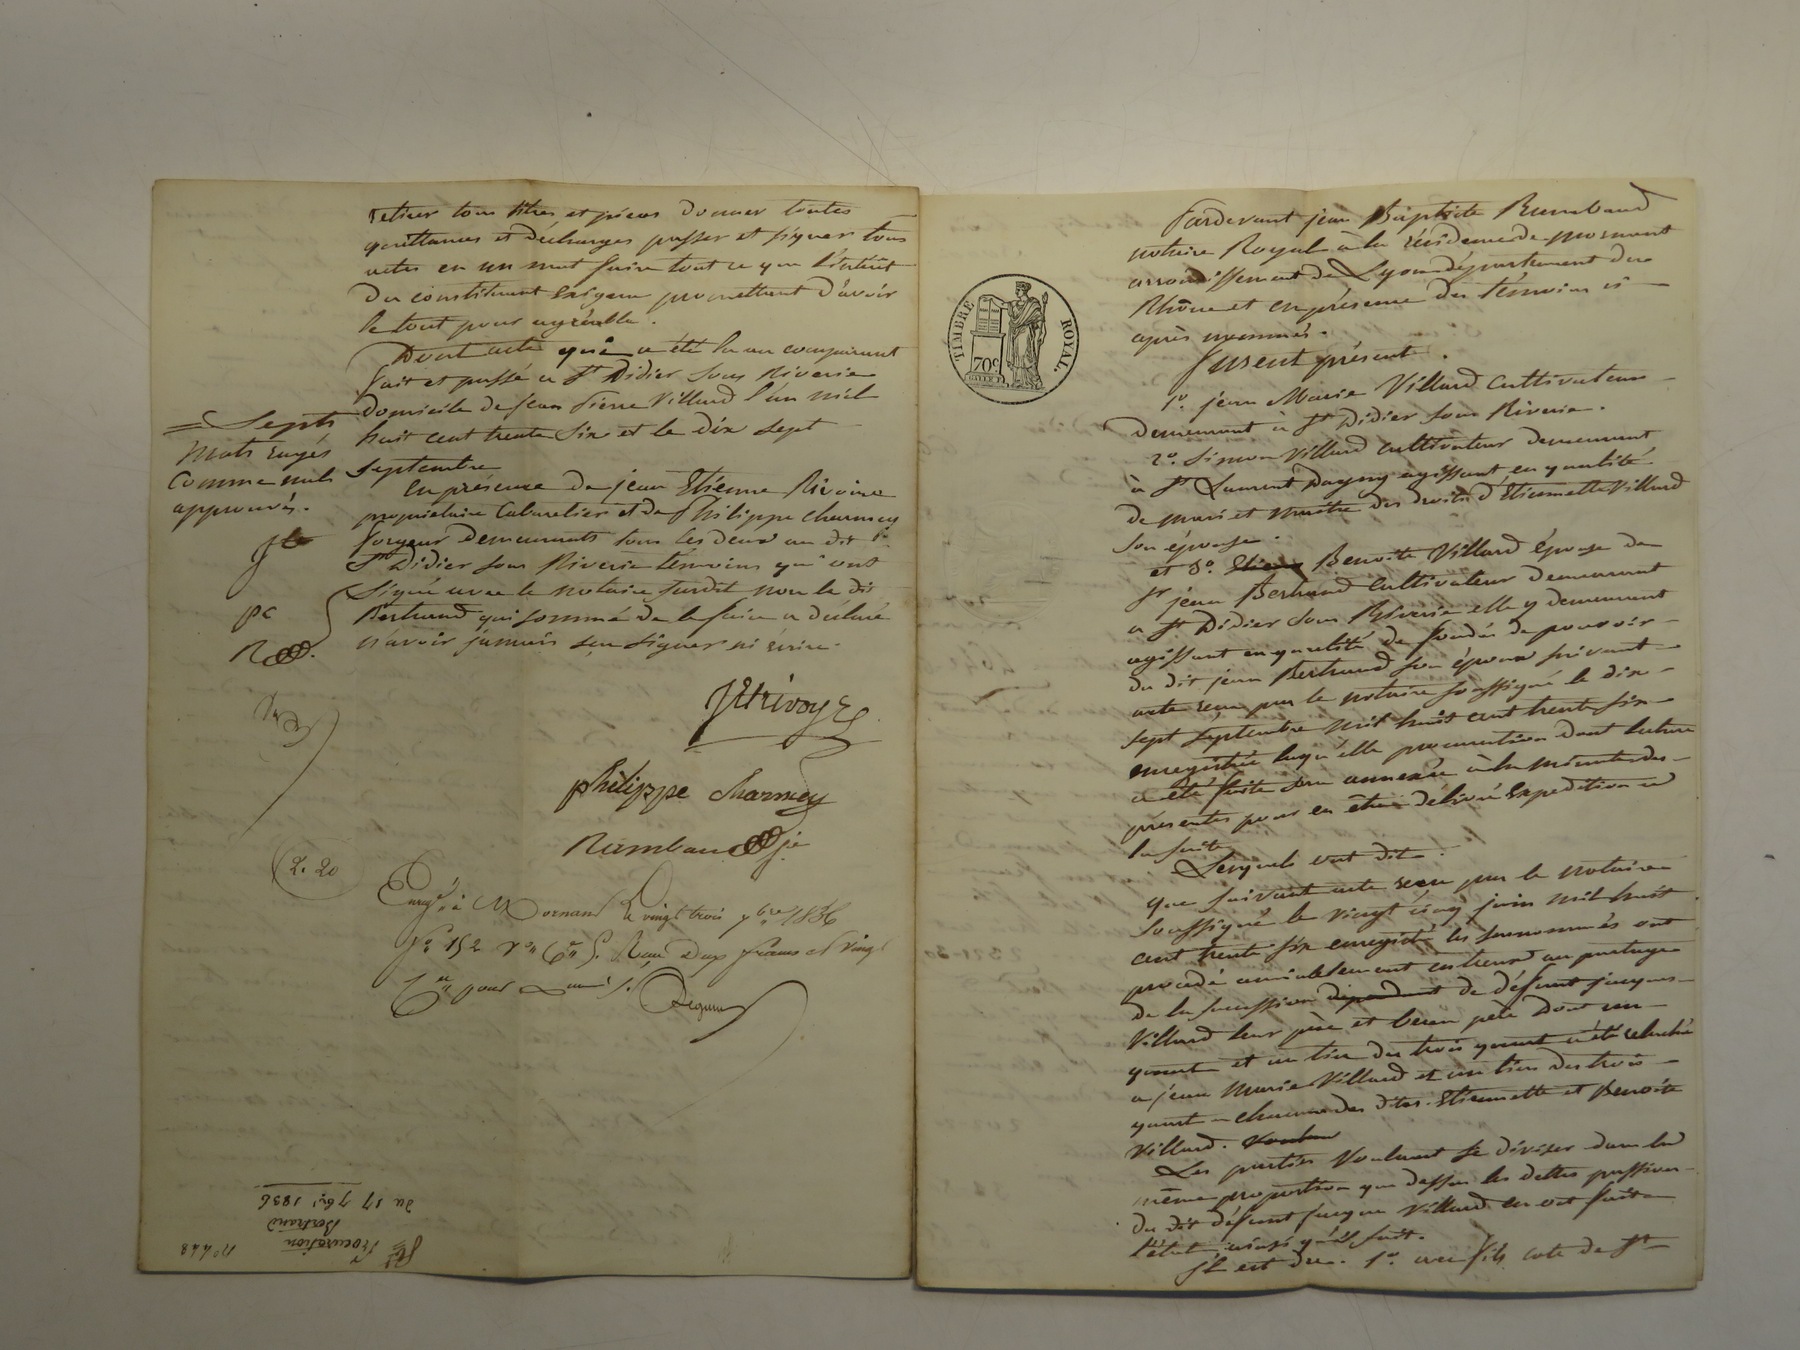 retirer tous titres et pièces donner toutes
quittances et décharges passer et signer tous
actes en un mot faire tout ce que l'intérêt
du constituant exigera promettant d'avoir
le tout pour agréable.
Dont acte qui a été lu au comparant
fait et passé a St Didier sous Riverie
domicile de jean Pierre Villard l'an mil
huit cent trente six et le dix sept
septembre
En présence de jean Etienne Rivoire
propriétaire Cabaretier et de Philippe charmey
forgeur demeurants tous les deux au dit
St Didier sous Riverie témoins qui ont
signé avec le notaire susdit non le dit
Bertrand qui sommé de le faire a déclaré
n'avoir jamais seu signer ni écrire.
= Septs
mots rayés
Comme nuls
approuvés.
pc
philippe charmey
Rambaud
2. 20
Enregé à Mornant le vingt trois 7bre 1836
fo 152 Reçu deux francs et vingt
Procuration
Bertrand
du 17 7bre 1836
No 448
TIMBRE ROYAL.
70c
Pardevant jean Baptiste Rambaud
notaire Royal à la résidence de mornant
arrondissement de Lyon département du
Rhône et en présence des témoins ci
après nommés.
furent présent.
1o. jean Marie Villard Cultivateur
demeurant à St Didier sous Riverie.
2o. Simon Villard cultivateur demeurant
à St Laurent Dagny agissant en qualité
de mari et maitre des droits d'Etiennette Villard
son épouse.
et 3o. Benoite Villard épouse de
Sr jean Bertrand Cultivateur demeurant
a St Didier sous Riverie elle y demeurant
agissant en qualité de fondée de pouvoir
du dit jean Bertrand son époux suivant
acte reçu par le notaire soussigné le dix
sept septembre mil huit cent trente six
enregistrée laquelle procuration dont lecture
a été faite sera annexée à la minute des
presentes pour en être délivré Expedition a
la suite
Lesquels ont dit.
que suivant acte reçu par le notaire
soussigné le vingt cinq juin mil huit
cent trente six enregistré les susnommés ont
procédé amiablement entreux au partage
de la succession dépendant de défunt jacques
Villard leur père et beau père dont un
quart et un tier des trois quart a été relaché
a jean Marie Villard et un tiers des trois
quart a chacune des dites Etiennette et Benoite
Villard. Voulan
Les parties Voulant se diviser dans la
même proportion que dessus les dettes passives
du dit défunt jacques Villard en ont fait
l'état ainsi qu'il suit.
Il est du. 1o. aux fils cote de St